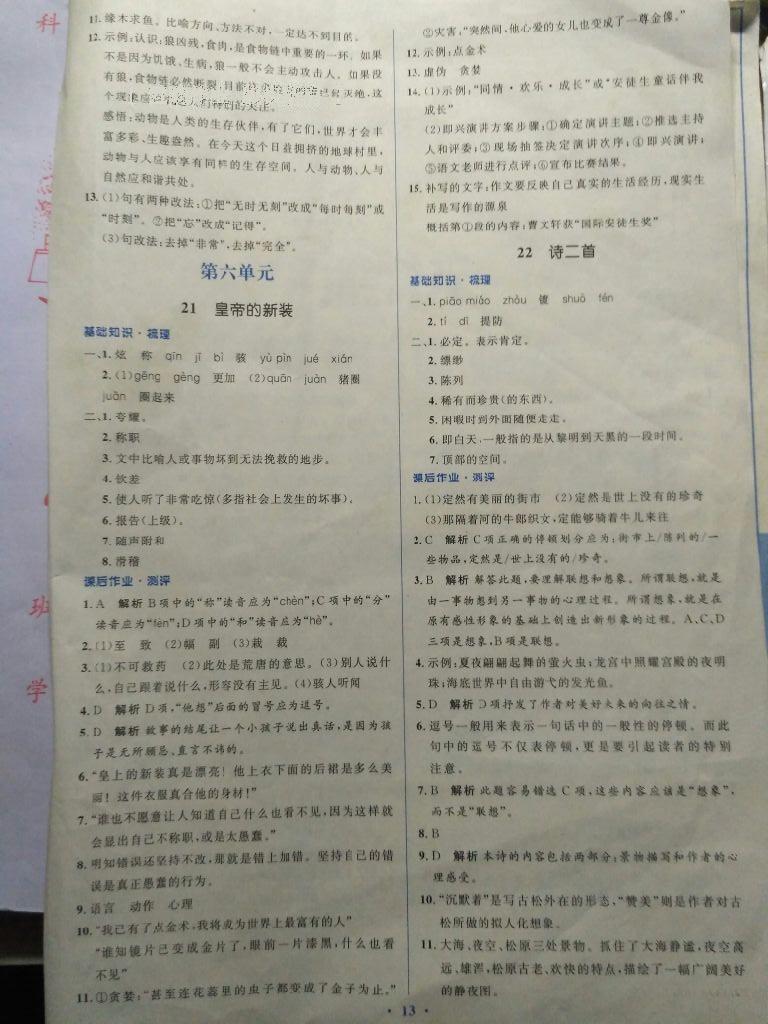 科
班
学
11. 缘木求鱼。比喻方向、方法不对,一定达不到目的。
12. 示例:认识:狼凶残,食肉,是食物链中重要的一环。如果
不是因为饥饿、生病,狼一般不会主动攻击人。如果没
有狼,食物链必然断裂,目前
灭绝,这
个现象
感悟:动物是人类的生存伙伴,有了它们,世界才会丰
富多彩、生趣盎然。在今天这个日益拥挤的地球村里,
动物与人应该享有同样的生存空间。人与动物、人与
自然应和谐共处。
13. (1)句有两种改法:①把“无时无刻”改成“每时每刻”或
“时刻”。②把“忘”改成“记得”。
(3)句改法:去掉“非常”,去掉“完全”。
第六单元
21 皇帝的新装
基础知识·梳理
一、1. 炫 称 qīn jī bì 骇 yù pìn jué xián
2. (1)gēng gèng 更加 (2)quān juàn 猪圈
juān 圈起来
二、1. 夸耀。
2. 称职
3. 文中比喻人或事物坏到无法挽救的地步。
4. 钦差
5. 使人听了非常吃惊(多指社会上发生的坏事)。
6. 报告(上级)。
7. 随声附和
8. 滑稽
课后作业·测评
1. A 解析 B项中的“称”读音应为“chèn”;C项中的“分”
读音应为“fèn”;D项中的“和”读音应为“hè”。
2. (1)至 致 (2)幅 副 (3)栽 裁
3. (1)不可救药 (2)此处是荒唐的意思。(3)别人说什
么,自己跟着说什么,形容没有主见。(4)骇人听闻
4. D 解析 D项,“他想”后面的冒号应为逗号。
5. D 解析 故事的结尾让一个小孩子说出真话,是因为孩
子是无所顾忌、直言不讳的。
6. “皇上的新装真是漂亮!他上衣下面的后裙是多么美
丽!这件衣服真合他的身材!”
7. “谁也不愿意让人知道自己什么也看不见,因为这样就
会显出自己不称职,或是太愚蠢。”
8. 明知错误还坚持不改,那就是错上加错。坚持自己的错
误是真正愚蠢的行为。
9. 语言 动作 心理
10. “我已有了点金术,我将成为世界上最富有的人”
“谁知镜片已变成金片了,眼前一片漆黑,什么也看
不见”
11. ①贪婪:“甚至连花蕊里的虫子都变成了金子为止。”
②灾害,“突然间,他心爱的女儿也变成了一尊金像。”
12. 示例:点金术
13. 虚伪 贪婪
14. (1)示例:“同情·欢乐·成长”或“安徒生童话伴我
成长”
(2)即兴演讲方案步骤:①确定演讲主题;②推选主持
人和评委;③现场抽签决定演讲次序;④即兴演讲;
⑤语文老师进行点评;⑥宣布比赛结果。
15. 补写的文字:作文要反映自己真实的生活经历,现实生
活是写作的源泉
概括第①段的内容:曹文轩获“国际安徒生奖”
22 诗二首
基础知识·梳理
一、1. piāo miǎo zhòu 镀 shuò fén
2. tí dī 提防
二、1. 必定。表示肯定。
2. 缥缈
3. 陈列
4. 稀有而珍贵(的东西)。
5. 闲暇时到外面随便走走。
6. 即白天,一般指的是从黎明到天黑的一段时间。
7. 顶部的空间。
课后作业·测评
1. (1)定然有美丽的街市 (2)定然是世上没有的珍奇
(3)那隔着河的牛郎织女,定能够骑着牛儿来往
2. C 解析 C项正确的停顿划分应为:街市上/陈列的/一
些物品,定然是/世上没有的/珍奇。
3. B 解析 解答此题,要理解联想和想象。所谓联想,就是
由一事物想到另一事物的心理过程。所谓想象,就是在
原有感性形象的基础上创造出新形象的过程。A、C、D
三项是想象,B项是联想。
4. 示例:夏夜翩翩起舞的萤火虫;龙宫中照耀宫殿的夜明
珠;海底世界中自由游弋的发光鱼。
5. D 解析 D项抒发了作者对美好未来的向往之情。
6. 逗号一般用来表示一句话中的一般性的停顿。而此
句中的逗号不仅表停顿,更是要引起读者的特别
注意。
7. B 解析 此题容易错选C项,这些内容应该是“想象”,
而不是“联想”。
8. B
9. D 解析 本诗的内容包括两部分:景物描写和作者的心
理感受。
10. “沉默着”是写古松外在的形态,“赞美”则是作者对古
松所做的拟人化想象。
11. 大海、夜空、松原三处景物。抓住了大海静谧,夜空高
远、雄浑,松原古老、欢快的特点,描绘了一幅广阔美好
的静夜图。
· 13 ·